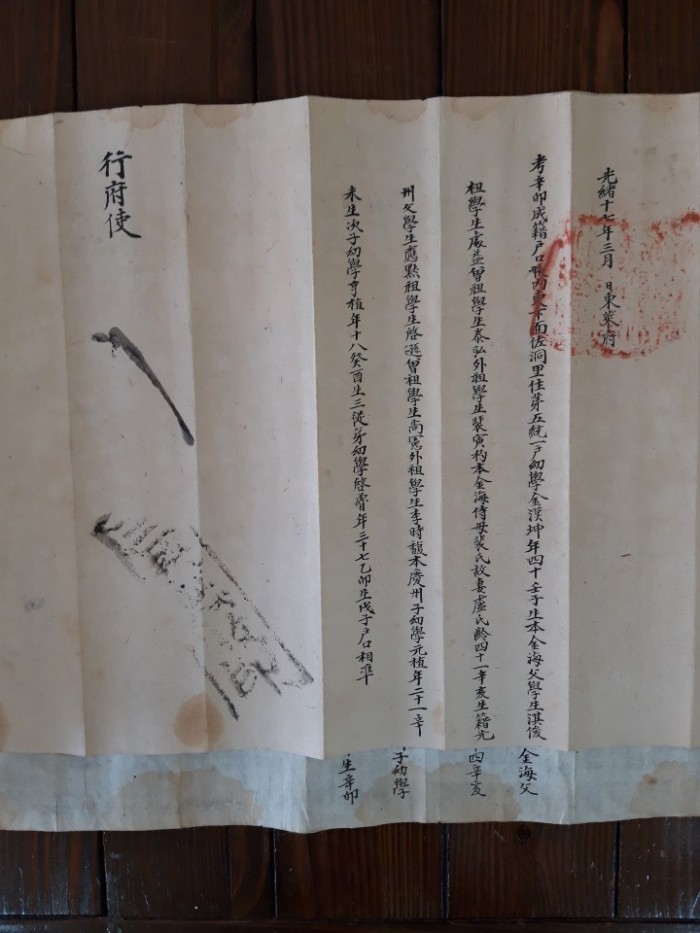 光緖十七年三月 日東萊府
考辛卯成籍戶口帳內東下面佐洞里住第五統一戶幼學金漢坤年四十壬子生本金海父學生淇俊
祖學生處益曾祖學生泰弘外祖學生裴寅杓本金海侍母裴氏故妻盧氏齡四十一辛亥生籍光
州父學生應點祖學生啓遜曾祖學生尙憲外祖學生李時馥本慶州子幼學元植年二十一辛
未生次子幼學亨植年十八癸酉生三從弟幼學啓費年三十七乙卯生戊子戶口相準
行府使
金海父
四辛亥
子幼學
生辛卯